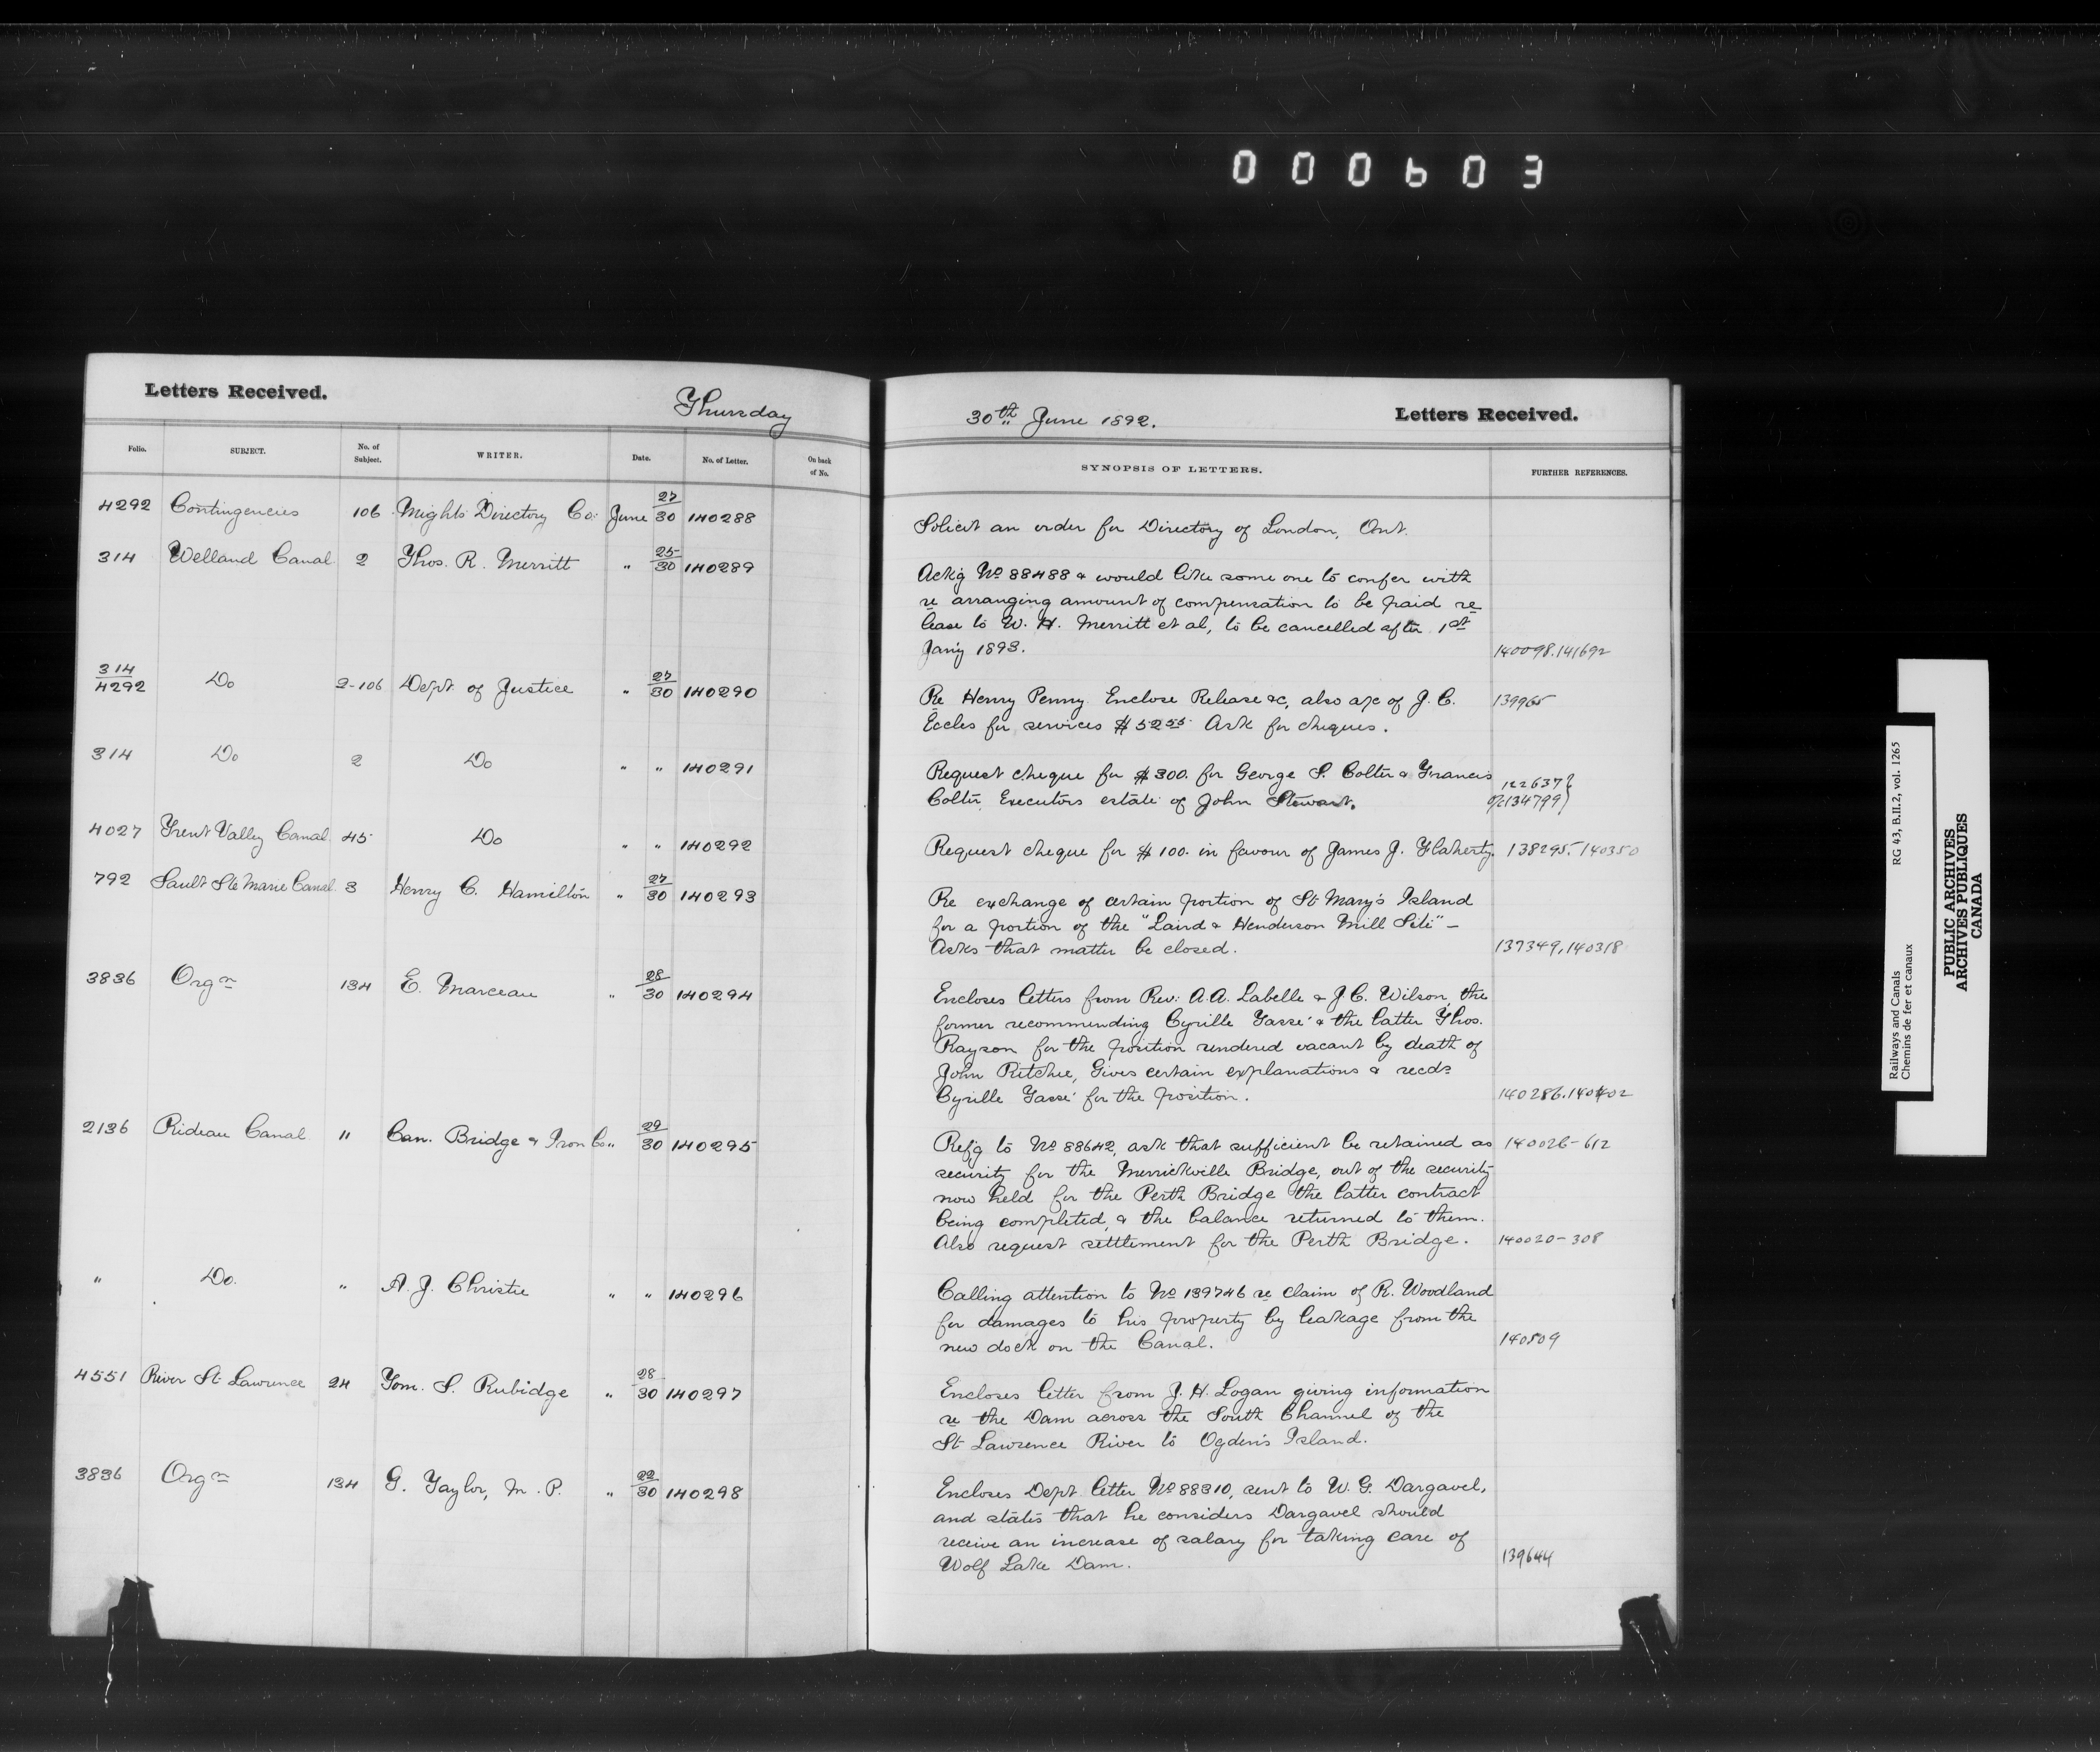 000603
Letters Received.
Thursday
30th June 1892.
Letters Received.
Folio. SUBJECT. No. of Subject. WRITER. Date. No. of Letter. On back of No.
SYNOPSIS OF LETTERS. FURTHER REFERENCES.
4292 Contingencies 106 Might's Directory Co: June 27/30 140288
Solicit an order for Directory of London, Ont.
314 Welland Canal 2 Thos. R. Merritt " 25/30 140289
Ack'g No 88488 & would like some one to confer with
re arranging amount of compensation to be paid re
lease to W. H. Merritt et al, to be cancelled after 1st
Jan'y 1893. 140098.141692
314/4292 Do 2-106 Dept. of Justice " 27/30 140290
Re Henry Penny. Enclose Release &c, also a/c of J. C. 139965
Eccles for services $52 55 Ask for cheques.
314 Do 2 Do " " 140291
Request cheque for $300. for George S. Colter & Francis 122637
Colter, Executors estate of John Stewart. 134799
4027 Trent Valley Canal 45 Do " " 140292
Request cheque for $100. in favour of James J. Flaherty. 138295.140350
792 Sault Ste Marie Canal 3 Henry C. Hamilton " 27/30 140293
Re exchange of certain portion of St Mary's Island
for a portion of the "Laird & Henderson Mill Site" –
Asks that matter be closed. 137349,140318
3836 Orgn 134 E. Marceau " 28/30 140294
Encloses letters from Rev: A.A. Labelle & J.C. Wilson, the
former recommending Cyrille Tassé & the latter Thos.
Rayson for the position rendered vacant by death of
John Ritchie, Gives certain explanations & recds
Cyrille Tassé for the position. 140286.140402
2136 Rideau Canal 11 Can. Bridge & Iron Co " 29/30 140295
Ref'g to No 88642, ask that sufficient be retained as 140026-612
security for the Merrickville Bridge, out of the security
now held for the Perth Bridge the latter contract
being completed, & the balance returned to them.
Also request settlement for the Perth Bridge. 140020-308
" Do. " A. J. Christie " " 140296
Calling attention to No 139746 re claim of R. Woodland
for damages to his property by leakage from the
new dock on the Canal. 140509
4551 River St Lawrence 24 Tom. S. Rubidge " 28/30 140297
Encloses letter from J. H. Logan giving information
re the Dam across the South Channel of the
St Lawrence River to Ogden's Island.
3836 Orgn 134 G. Taylor, M.P. " 22/30 140298
Encloses Dept. letter No 88310, sent to W. G. Dargavel,
and states that he considers Dargavel should
receive an increase of salary for taking care of
Wolf Lake Dam. 139644
Railways and Canals RG 43, B.II.2, vol. 1265
Chemins de fer et canaux
PUBLIC ARCHIVES
ARCHIVES PUBLIQUES
CANADA